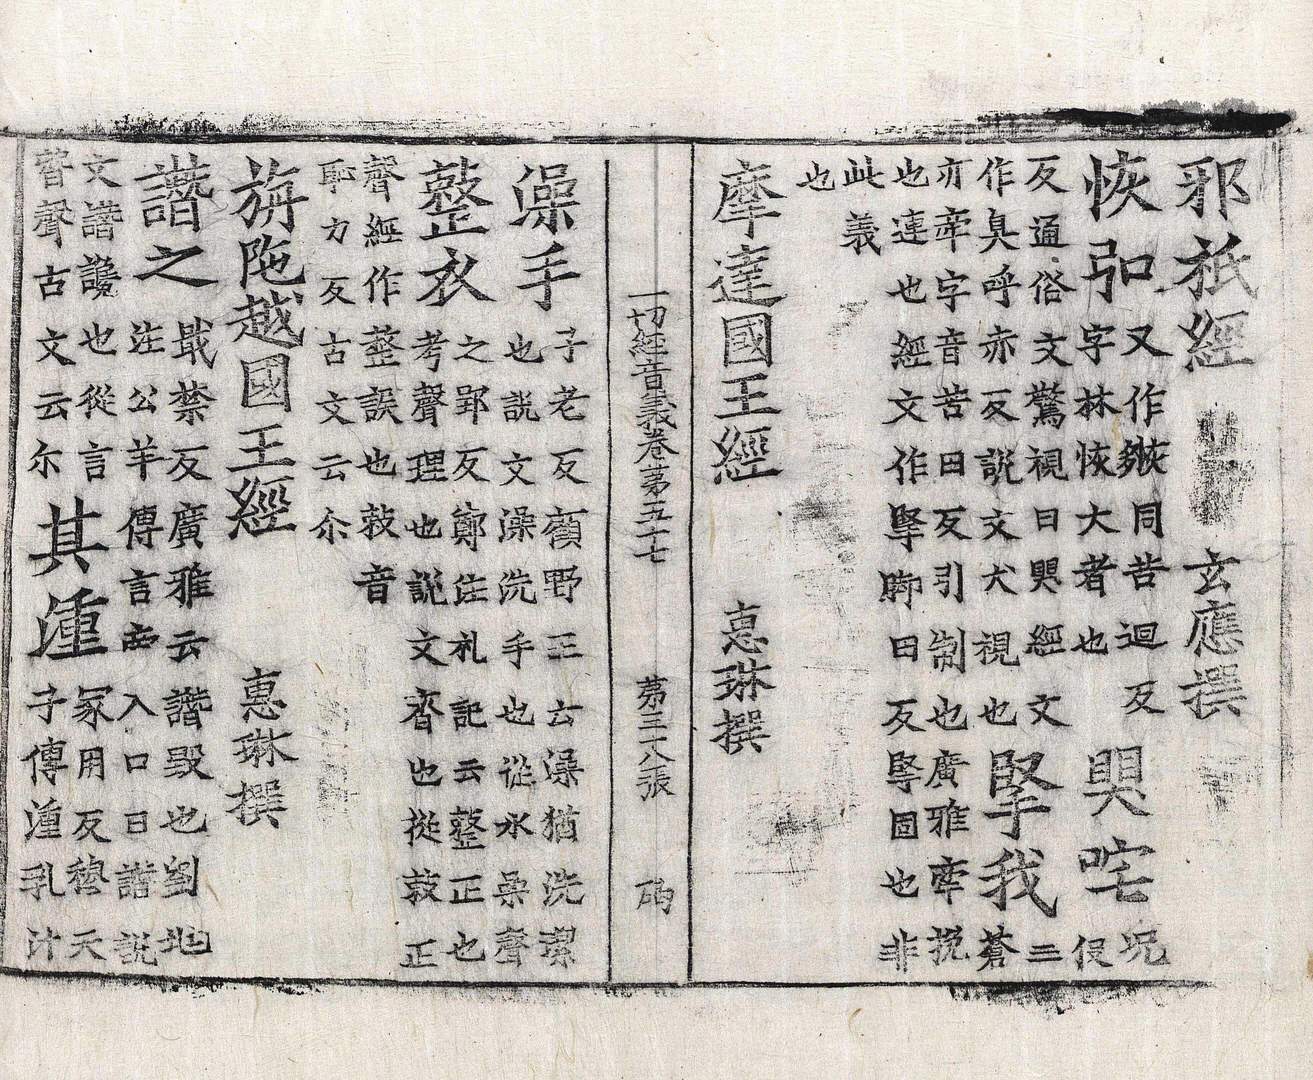 邪祇經 玄應撰
恢弞 又作㷇同苦迴反
字林恢大者也 㒵咤 況役
反通俗文驚視曰㒵經文
作臭呼赤反説文犬視也 掔我 三蒼
亦牽字音苦田反引制也廣雅牽挽
也連也經文作掔脚田反掔固也非
此義
也
摩達國王經 惠琳撰
一切經音義卷苐五十七 苐三十八張 碻
澡手 子老反顧野王云澡猶洗潔
也説文澡洗手也從水喿聲
整衣 之郢反鄭注礼記云整正也
考聲理也説文齊也從敕正
聲經作𢿫誤也敕音
恥力反古文云尒
旃陁越國王經 惠琳撰
譖之 戢禁反廣雅云譖毀也劉地
注公羊傳言由入口曰譖説
文譖讒也從言
朁聲古文云尒 其湩 冢用反穆天
子傳湩乳汁